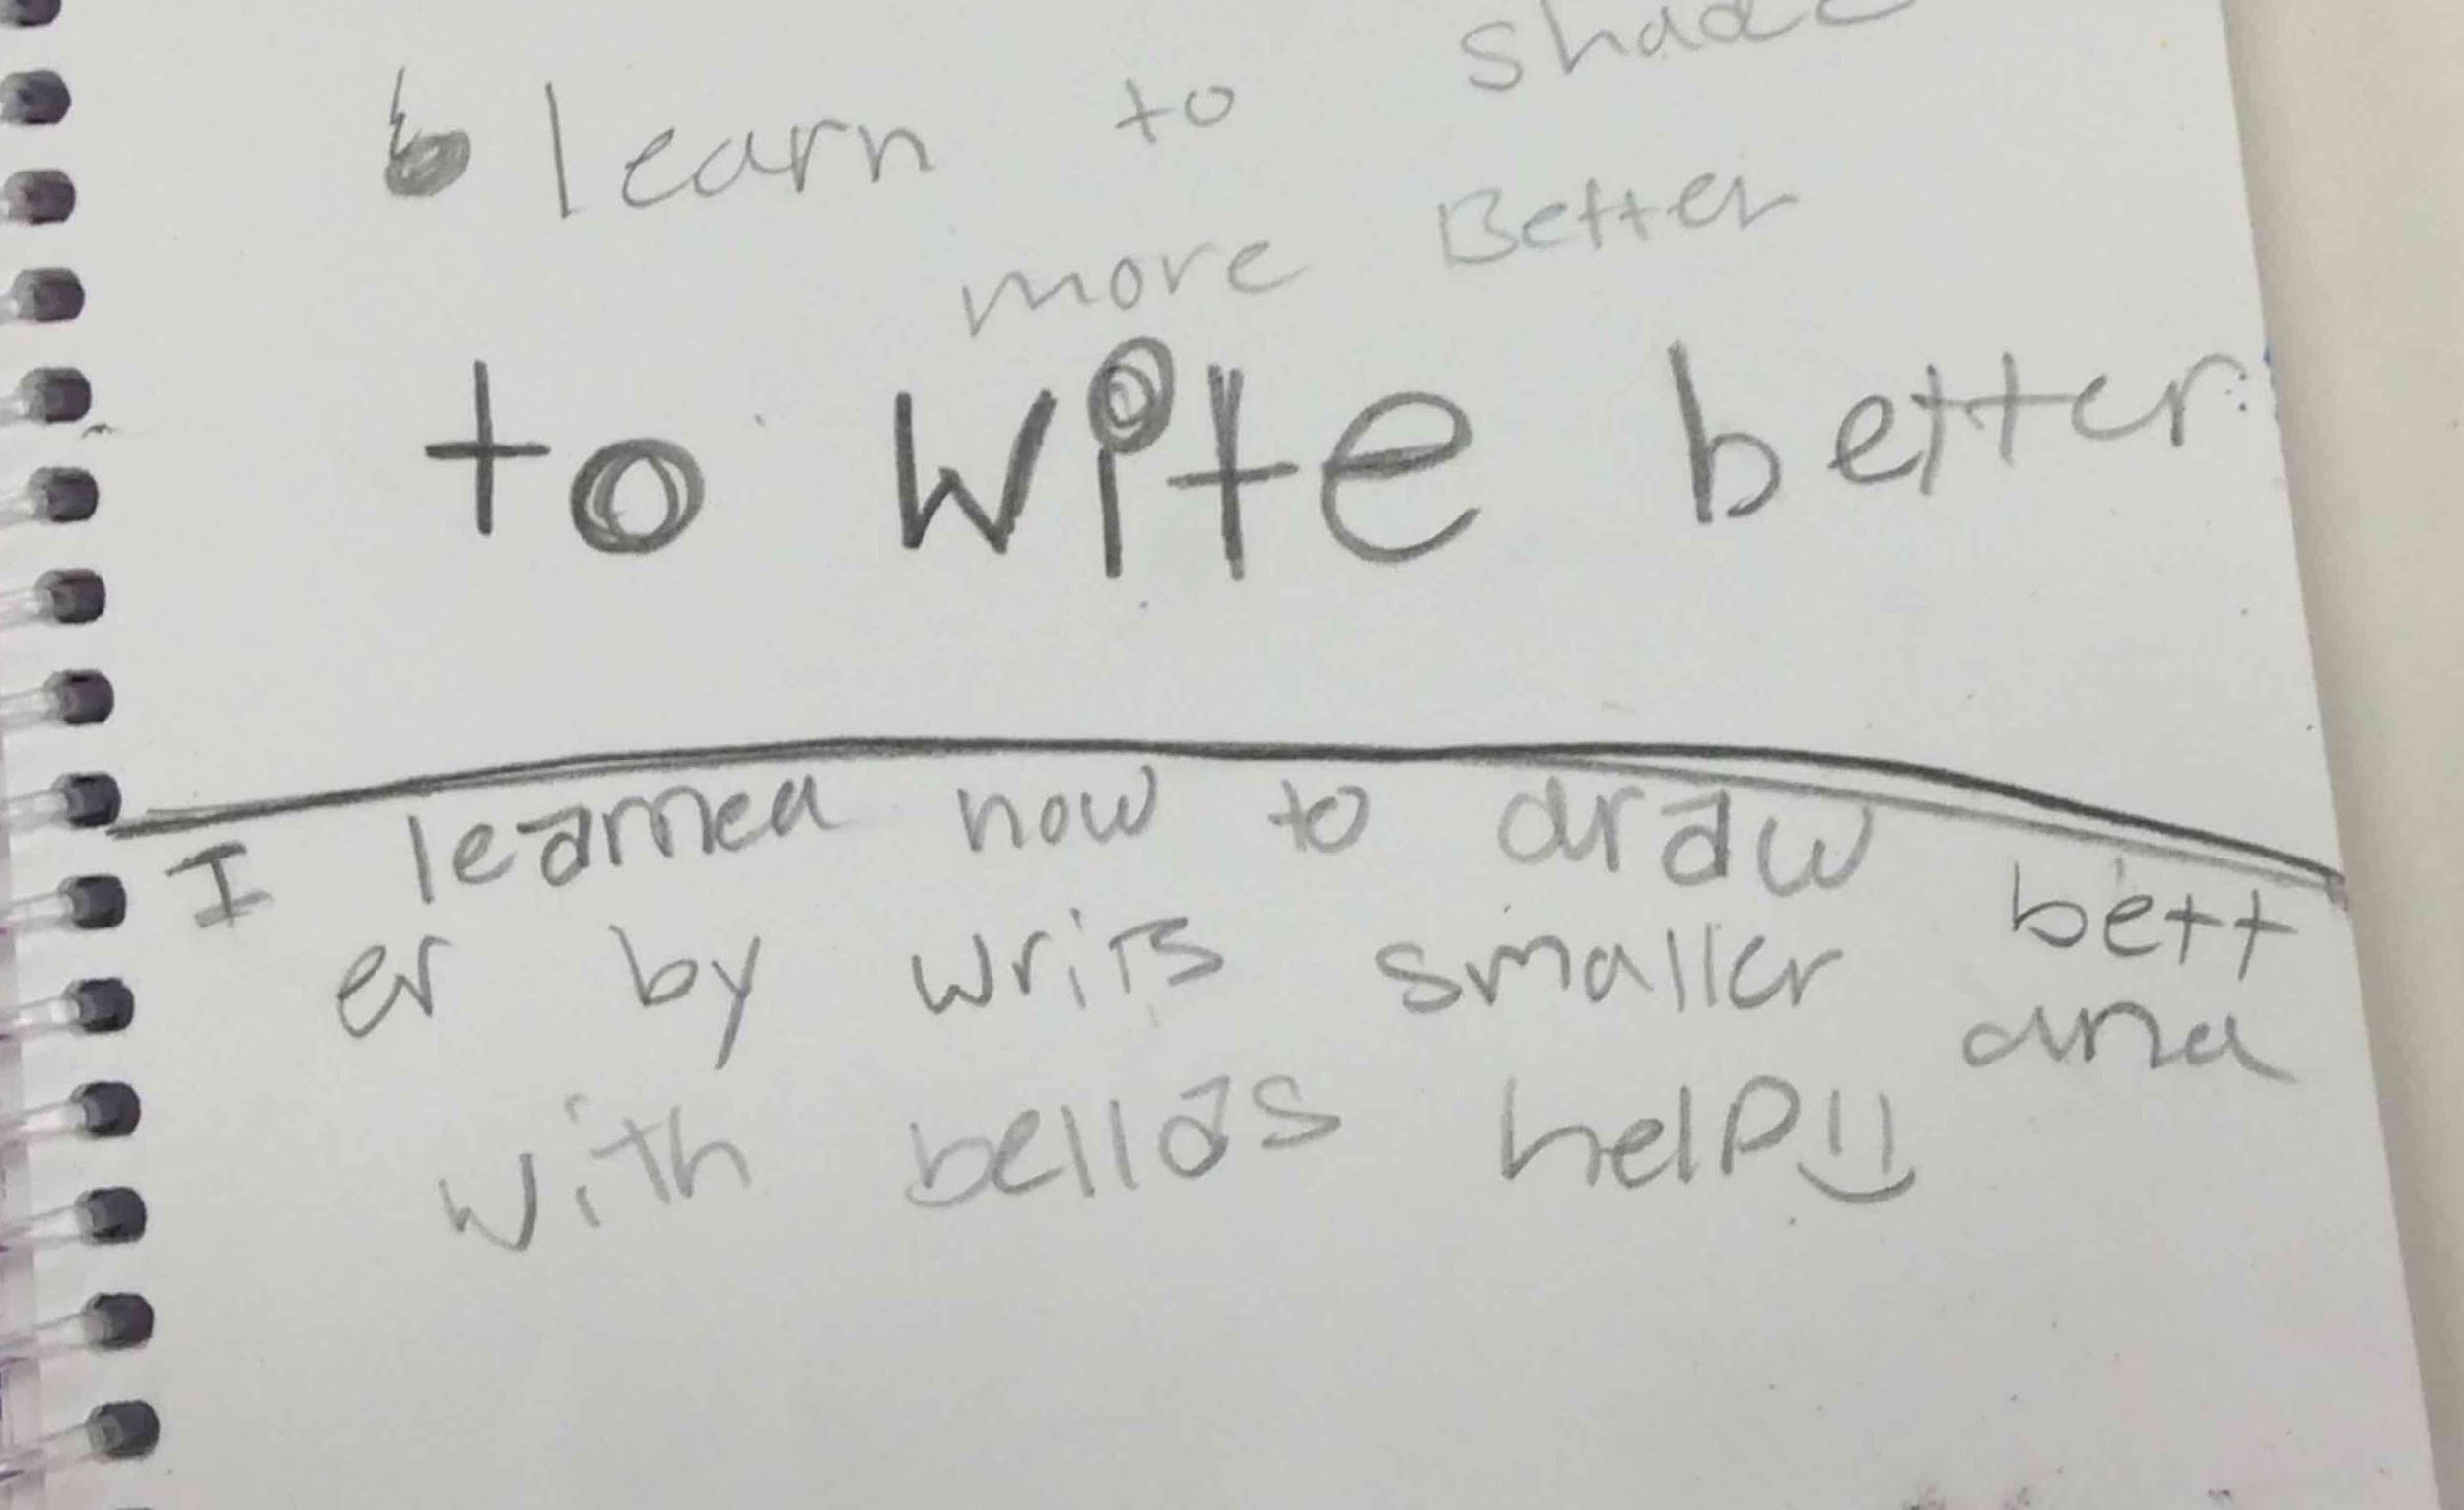 learn to shade
more Better
to wite better
I learned how to draw bett
er by writs smaller and
with bellas help